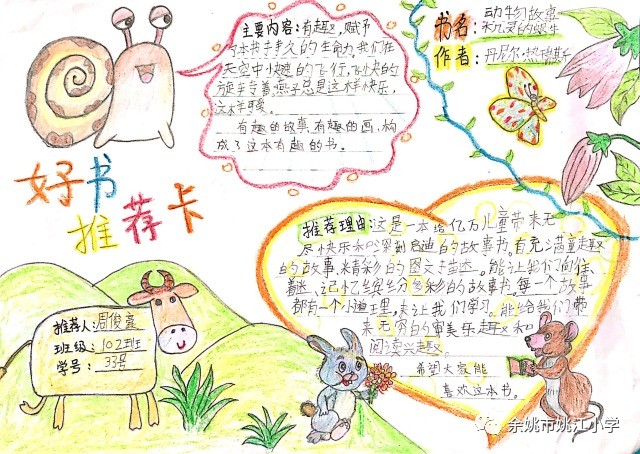 主要内容：有趣，赋予
了本书丰久的生命力。我们在
天空中小燕的飞行，飞快的
旋丰专着燕子总是这样快乐，
这样可爱。
有趣的故事，有趣的画，构
成了这本有趣的书。
书名：动物故事
机灵的蜗牛
作者：丹尼尔·
好书
推荐卡
推荐理由：这是一本给亿万儿童带来无
尽快乐和心深刻启迪的故事书。有充满童趣
的故事，精彩的图文描述。能让我们向往、
着迷、记忆缤纷多彩的故事书。每一个故事
都有一个小道理，来让我们学习。能给我们带
来无穷的审美乐趣和
阅读兴趣。
希望大家能
喜欢这本书。
推荐人：周俊
班级：102班
学号：33号
余姚市姚江小学